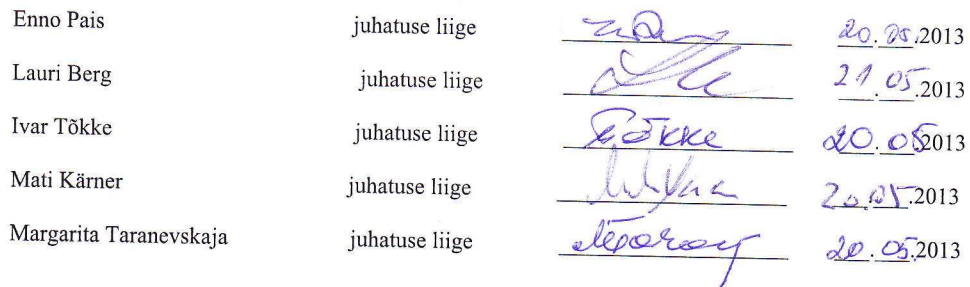 Enno Pais juhatuse liige 20.05.2013
Lauri Berg juhatuse liige 21.05.2013
Ivar Tõkke juhatuse liige Tõkke 20.05.2013
Mati Kärner juhatuse liige 20.05.2013
Margarita Taranevskaja juhatuse liige 20.05.2013